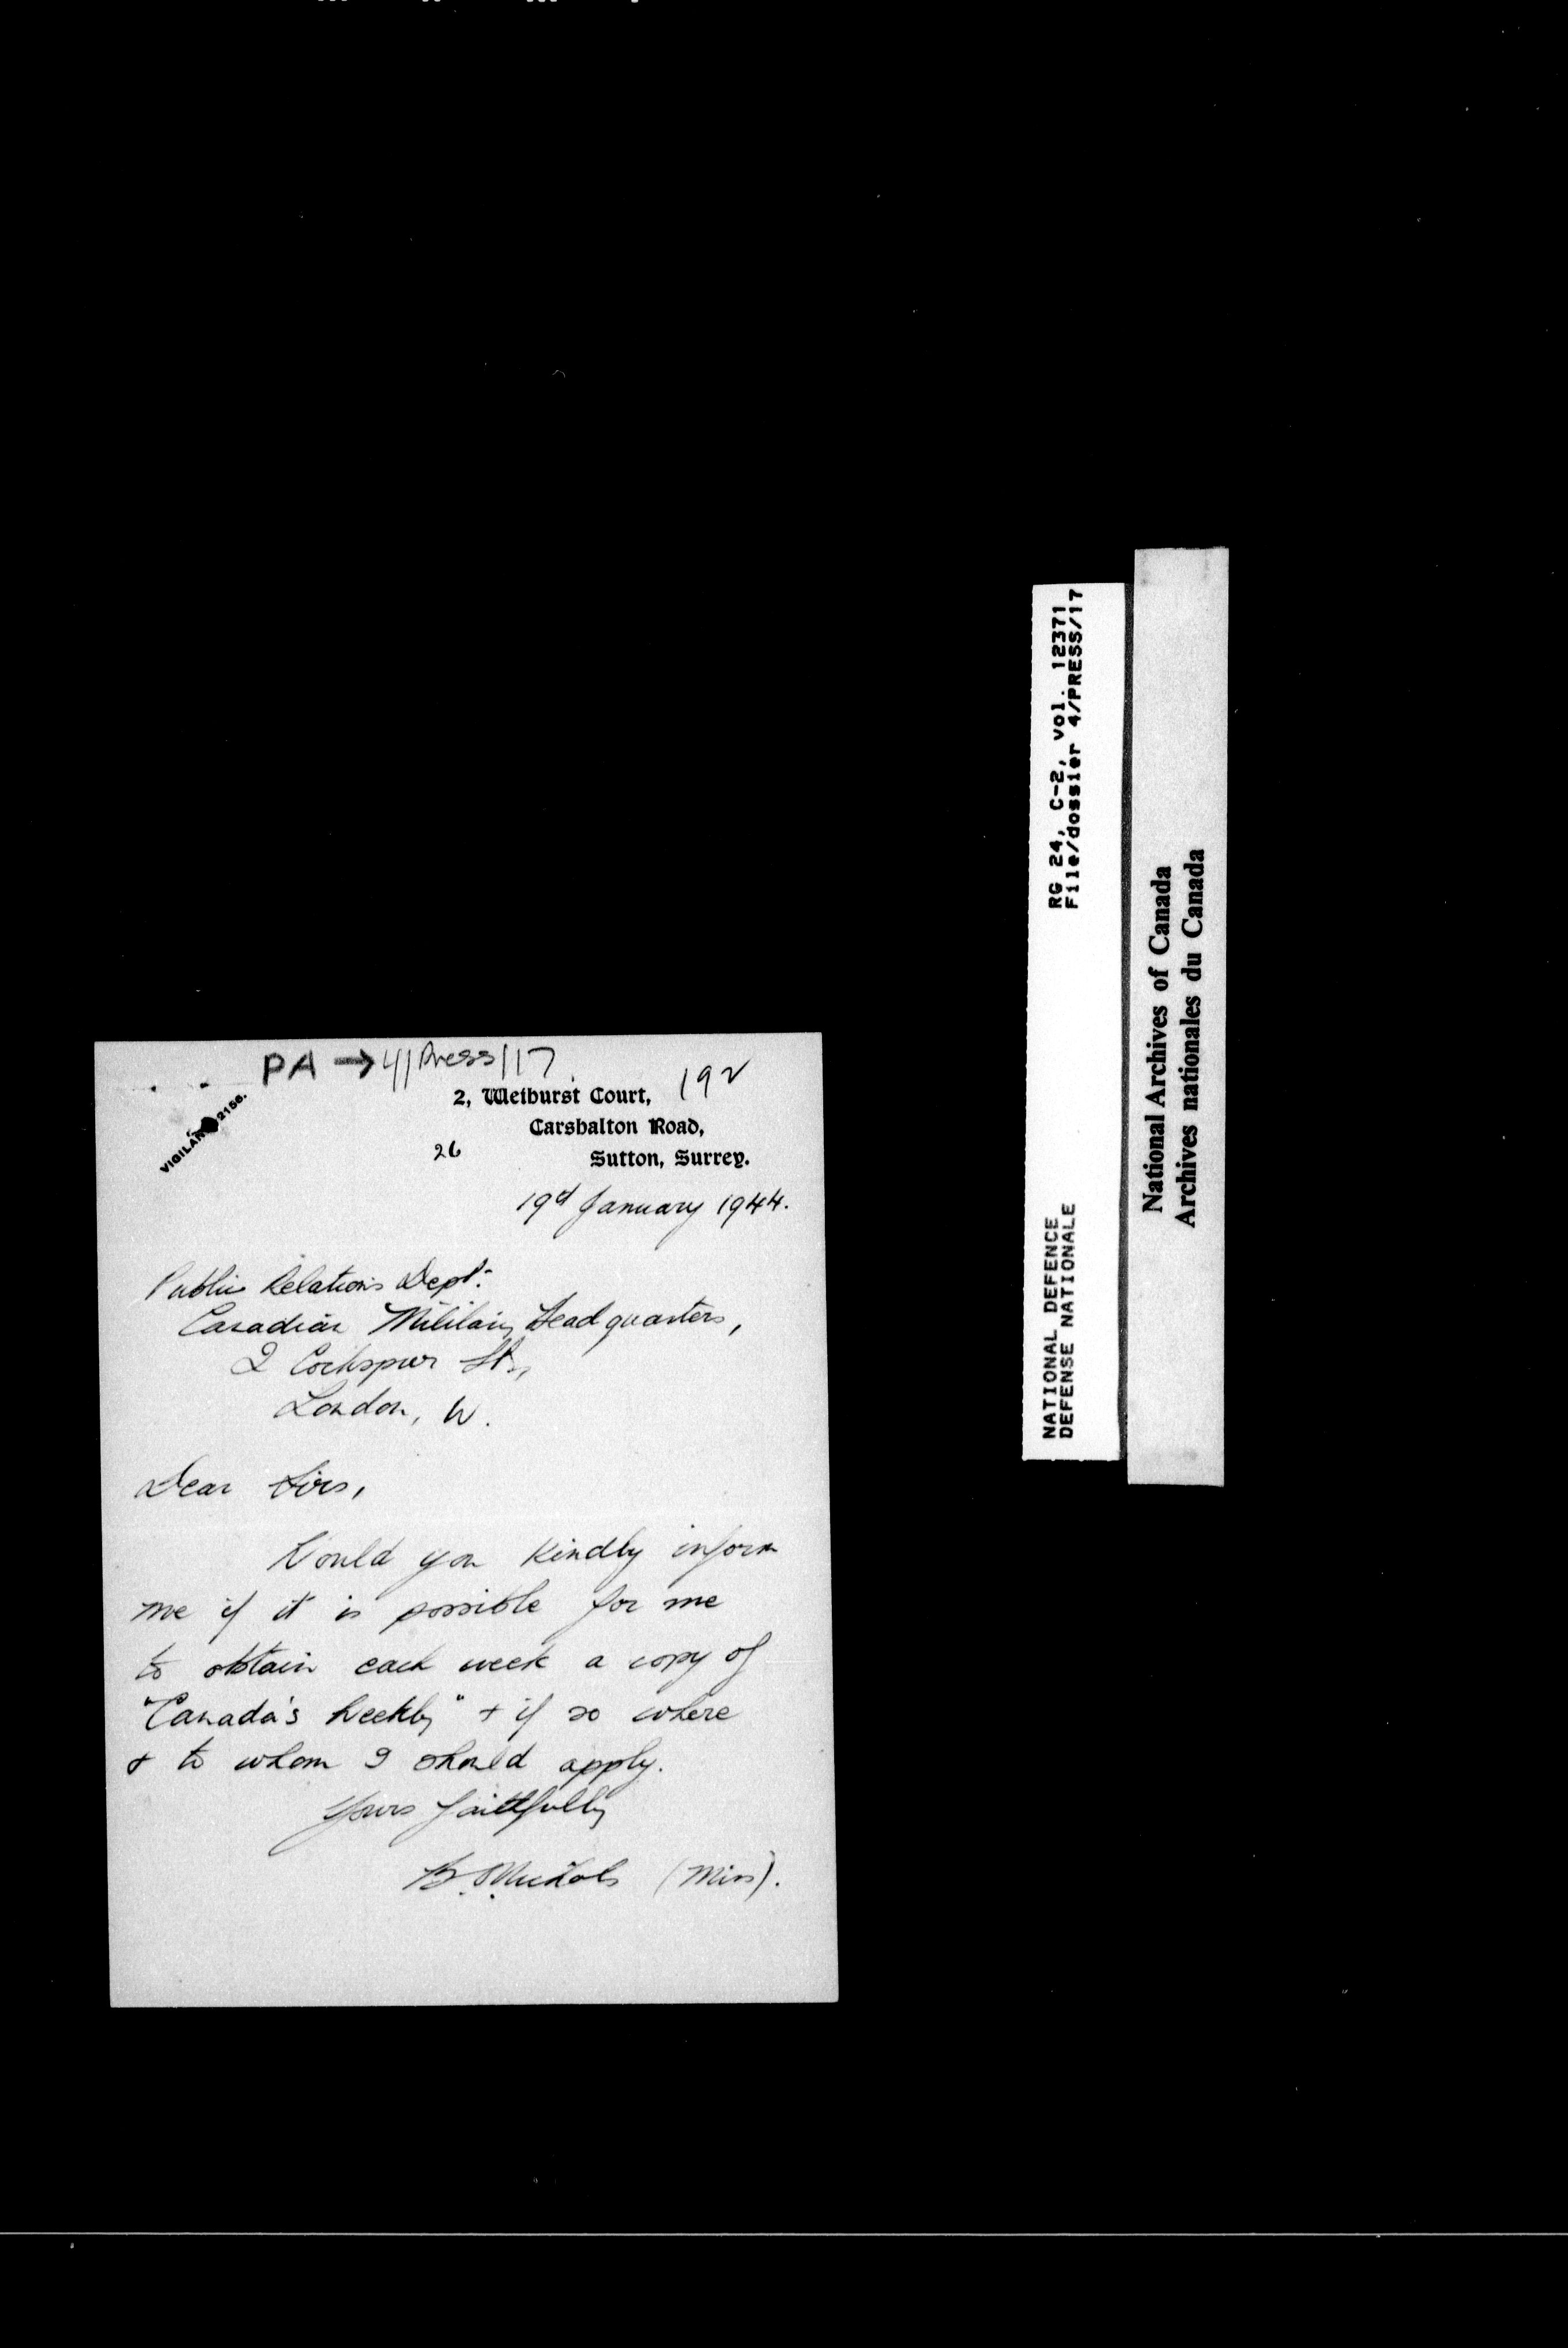 PA → 4/Press/17
192
VIGILAN 2156.
2, Welburst Court,
Carshalton Road,
26
Sutton, Surrey.
19th January 1944.
Public Relations Dept:
Canadian Military Headquarters,
2 Cockspur St.,
London, W.
Dear Sirs,
Would you kindly inform
me if it is possible for me
to obtain each week a copy of
"Canada's Weekly" + if so where
+ to whom I should apply.
Yours faithfully
B. Nichols (Miss).
RG 24, C-2, vol. 12371
File/dossier 4/PRESS/17
NATIONAL DEFENCE
DEFENSE NATIONALE
National Archives of Canada
Archives nationales du Canada